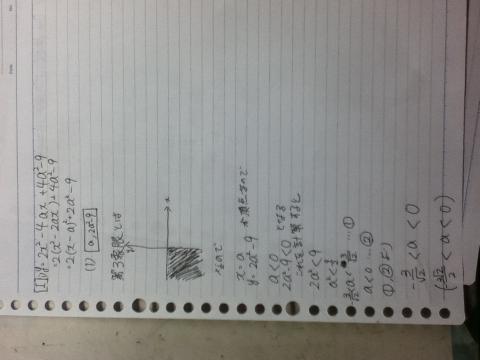 [1] y=2x²-4ax+4a²-9
=2(x²-2ax)+4a²-9
=2(x-a)²+2a²-9
(1) a, 2a²-9
第3象限とは
y
x
なので
x=a
y=2a²-9 が頂点なので
a<0
2a²-9<0 となる
これを計算すると
2a²<9
a²<9/2
-3/√2<a<3/√2 …①
a<0 …②
①②より
-3/√2<a<0
(-3√2/2<a<0)